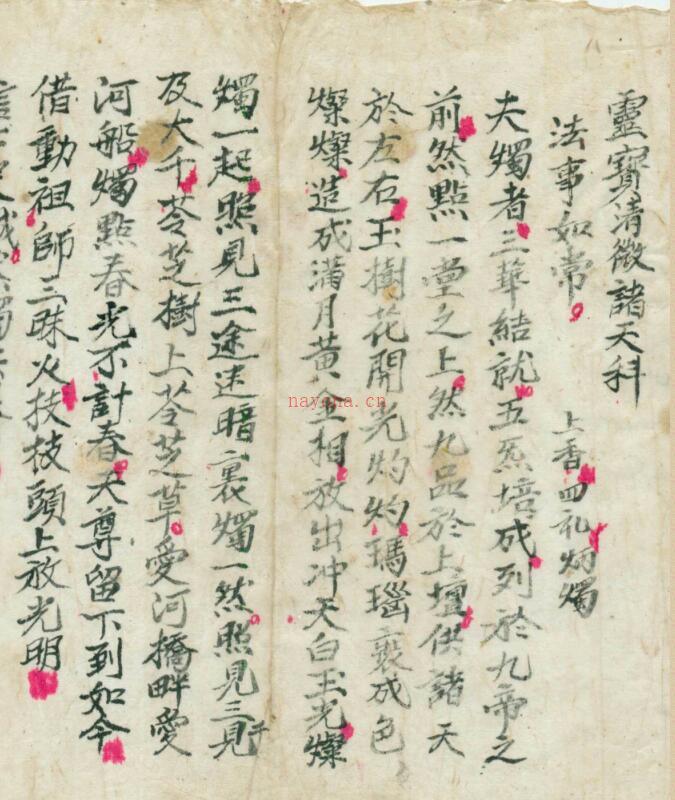 靈寶清微諸天科
法事如常 上香四礼炳燭
夫燭者三華結就五炁培成列於九帝之
前然點一堂之上然九品於上壇供諸天
於左右玉樹花開光灼灼瑪瑙裝成色
燦燦造成滿月黃金相放出冲天白玉光燦
燭一起照見三途迷暗裏燭一然照見三見千
及大千苓芝樹上苓芝草愛河橋畔愛
河船燭點春光不計春天尊留下到如今
借動祖師三昧火技技頭上放光明
nayona.cn